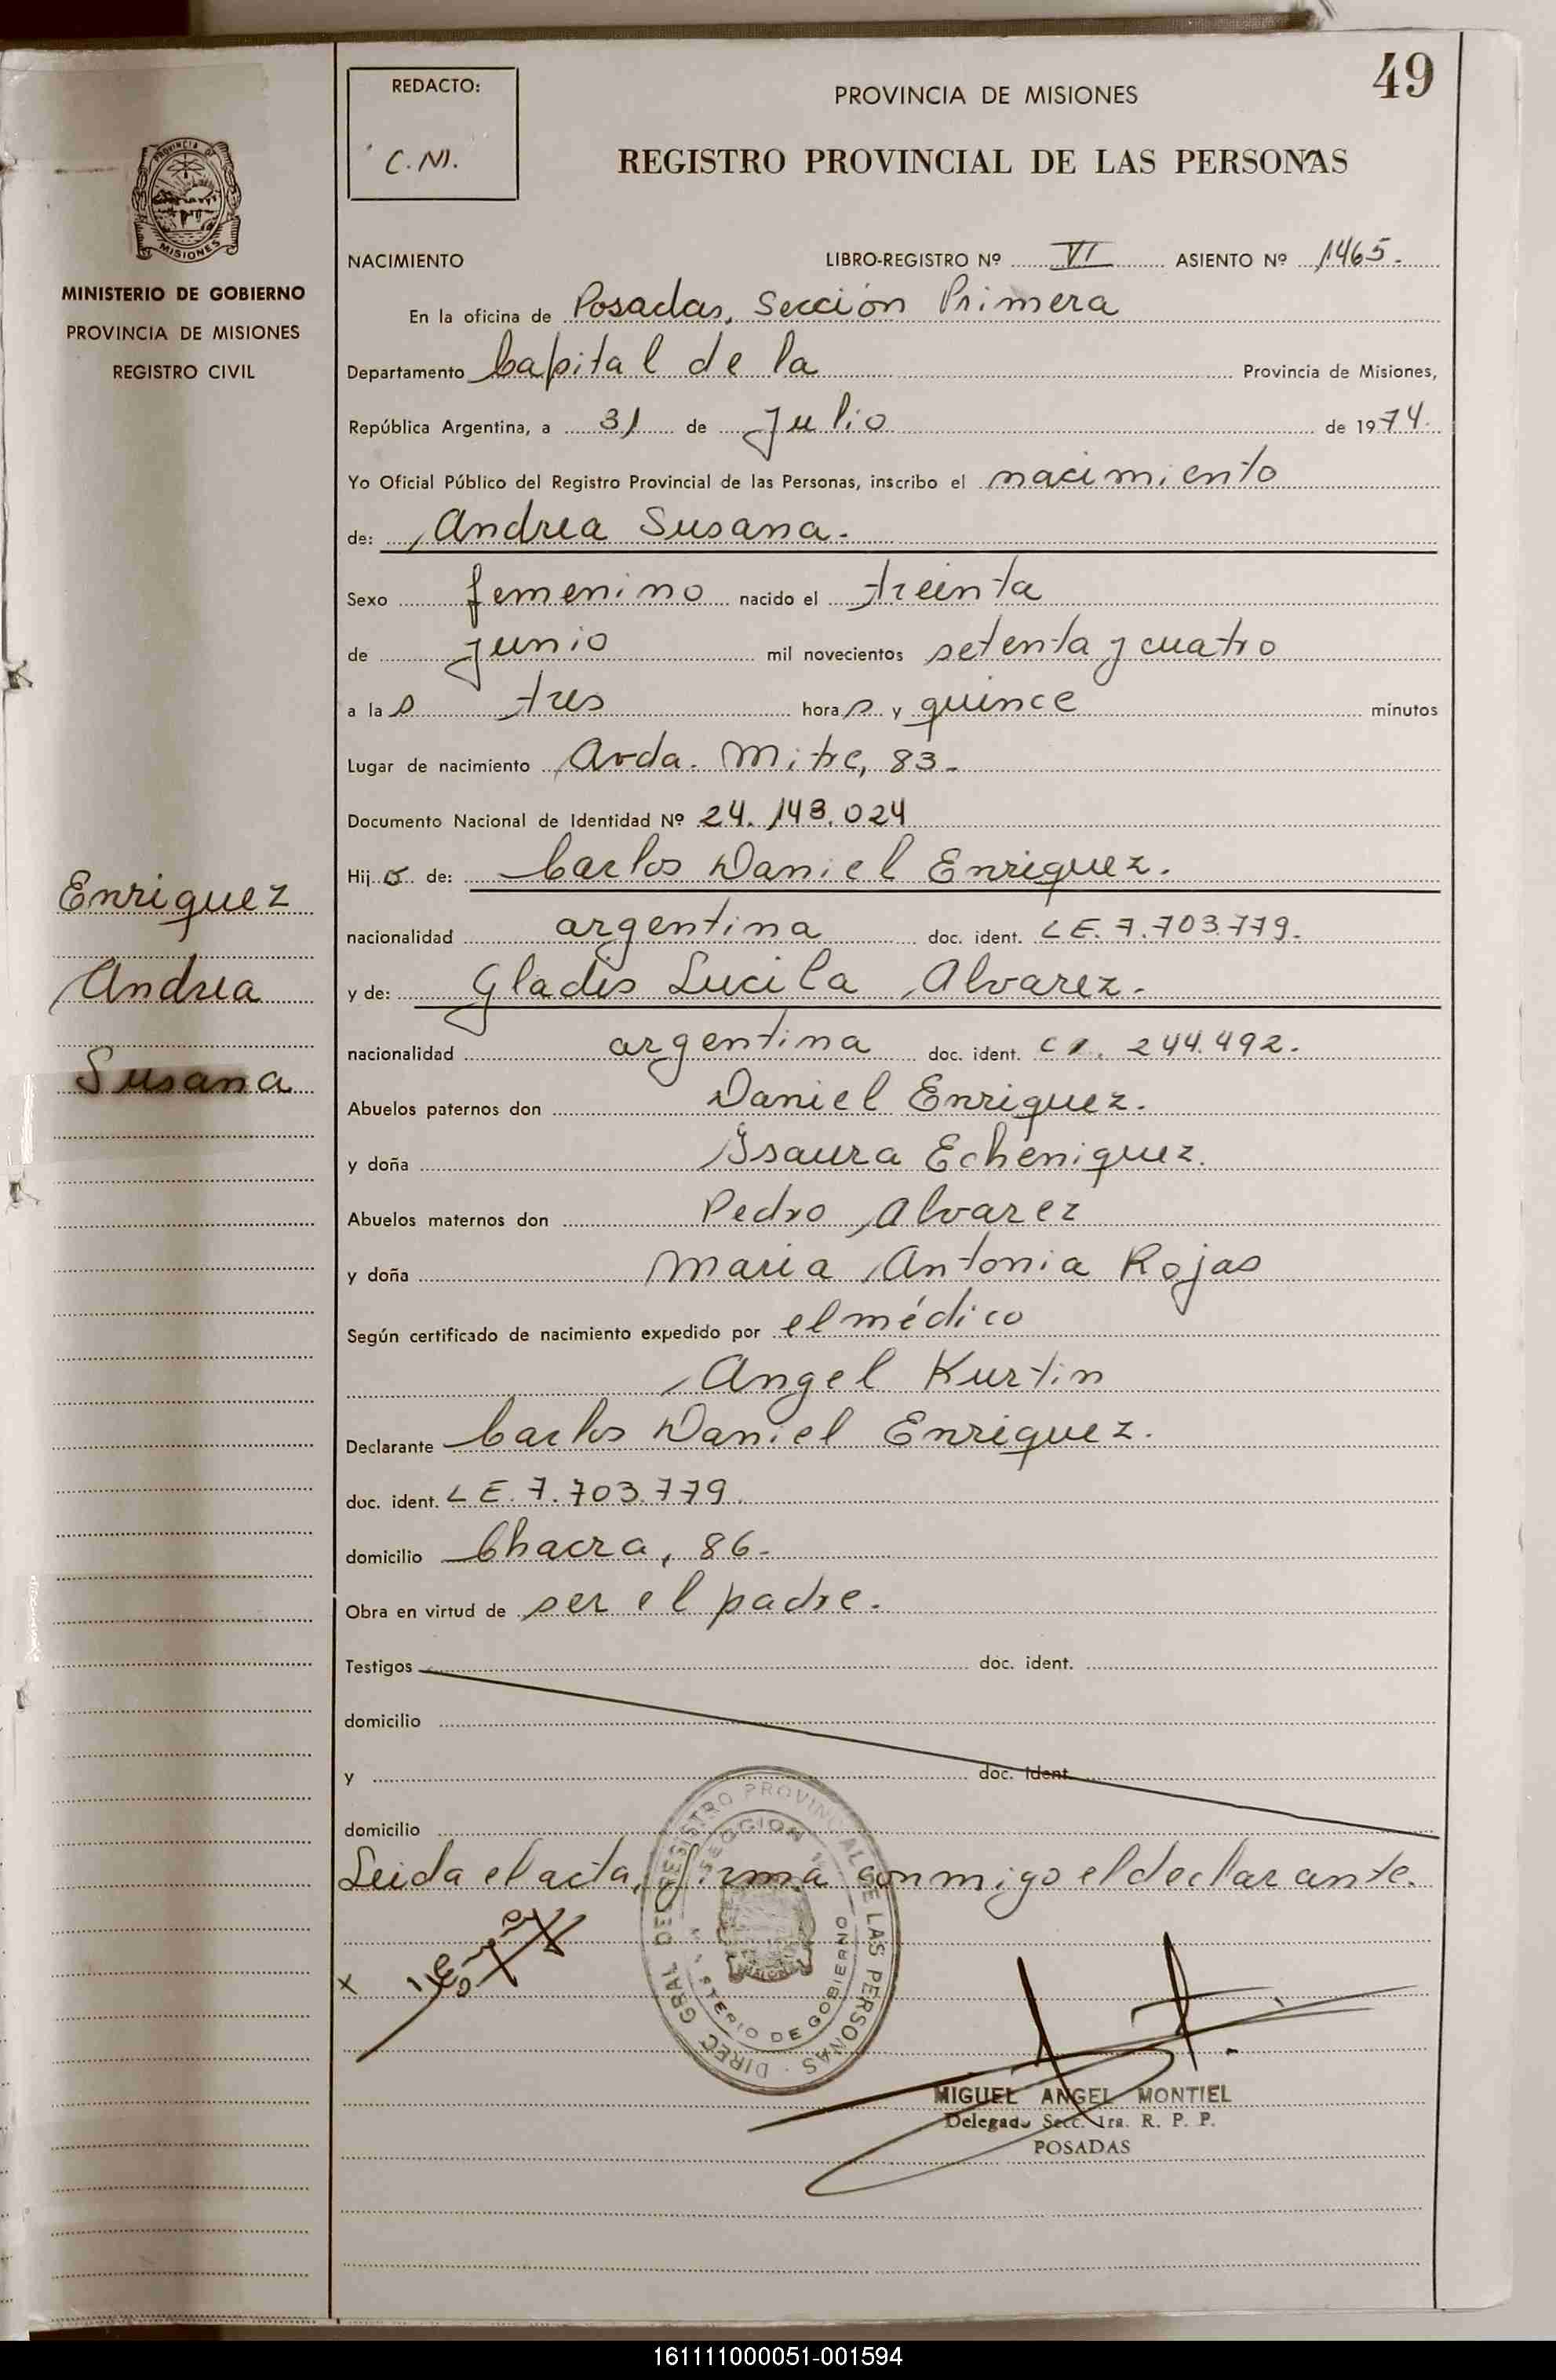 49
REDACTO:
C.M.
PROVINCIA DE MISIONES
REGISTRO PROVINCIAL DE LAS PERSONAS
PROVINCIA DE
MISIONES
MINISTERIO DE GOBIERNO
PROVINCIA DE MISIONES
REGISTRO CIVIL
NACIMIENTO LIBRO-REGISTRO Nº VI ASIENTO Nº 1465.
En la oficina de Posadas, Sección Primera
Departamento Capital de la Provincia de Misiones,
República Argentina, a 31 de Julio de 1974.
Yo Oficial Público del Registro Provincial de las Personas, inscribo el nacimiento
de: Andrea Susana.
Sexo femenino nacido el treinta
de junio mil novecientos setenta y cuatro
a las tres horas y quince minutos
Lugar de nacimiento Avda. Mitre, 83-
Documento Nacional de Identidad Nº 24.143.024
Hija de: Carlos Daniel Enriquez.
nacionalidad argentina doc. ident. LE. 7.703.779.
y de: Gladis Lucila Alvarez.
nacionalidad argentina doc. ident. 244.492.
Abuelos paternos don Daniel Enriquez.
y doña Isaura Echeniquez.
Abuelos maternos don Pedro Alvarez
y doña Maria Antonia Rojas
Según certificado de nacimiento expedido por el médico
Angel Kurtin
Declarante Carlos Daniel Enriquez.
doc. ident. LE. 7.703.779.
domicilio Chacra, 86-
Obra en virtud de ser el padre.
Testigos doc. ident.
domicilio
y doc. ident.
domicilio
Leida el acta, firma conmigo el declarante.
x
Enriquez
Andrea
Susana
DIREC. GRAL. DEL REGISTRO PROVINCIAL DE LAS PERSONAS
SECCION
MINISTERIO DE GOBIERNO
MIGUEL ANGEL MONTIEL
Delegado Secc. 1ra. R. P. P.
POSADAS
161111000051-001594